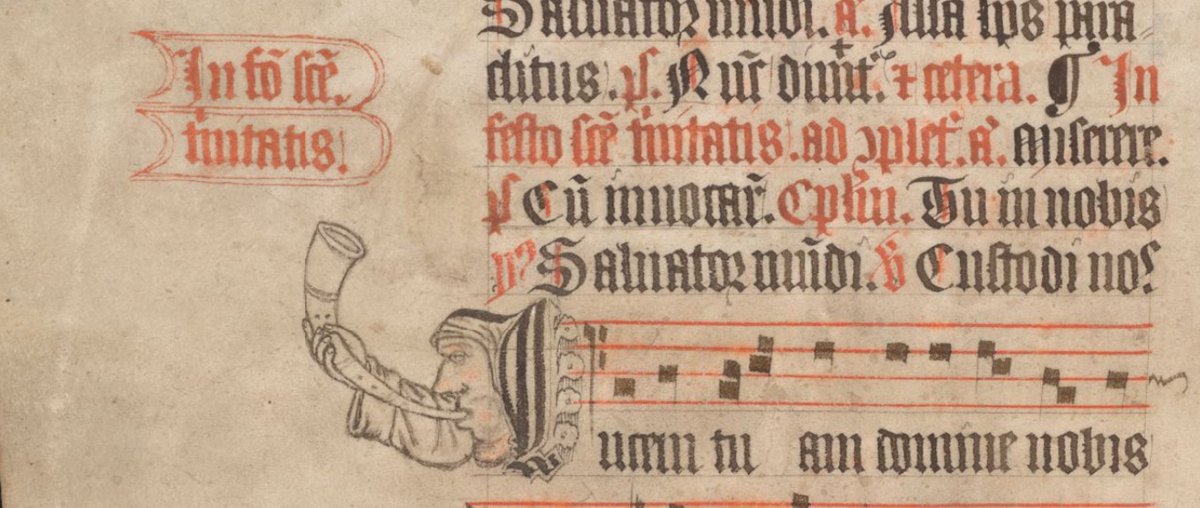 In fō scē.
t̾nitatis.
Saluator mūdi. a̅. para
clitus. ps. Nūc dimit̾. ⁊ cetera. ¶ In
festo scē t̾nitatis. ad ꝯplet̾. a̅. Miserere.
ps Cū inuocar̄. Cpl̄m. Tu in nobis
℟ Saluator mūdi. ℣ Custodi nos
Lucem tu am domine nobis